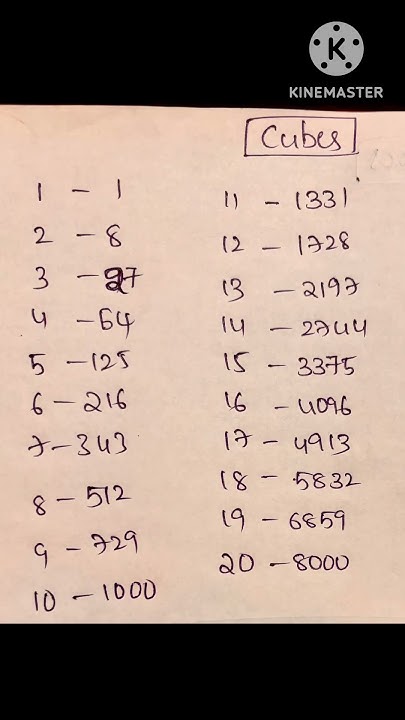 K
KINEMASTER
Cubes
1 - 1
2 - 8
3 - 27
4 - 64
5 - 125
6 - 216
7 - 343
8 - 512
9 - 729
10 - 1000
11 - 1331
12 - 1728
13 - 2197
14 - 2744
15 - 3375
16 - 4096
17 - 4913
18 - 5832
19 - 6859
20 - 8000